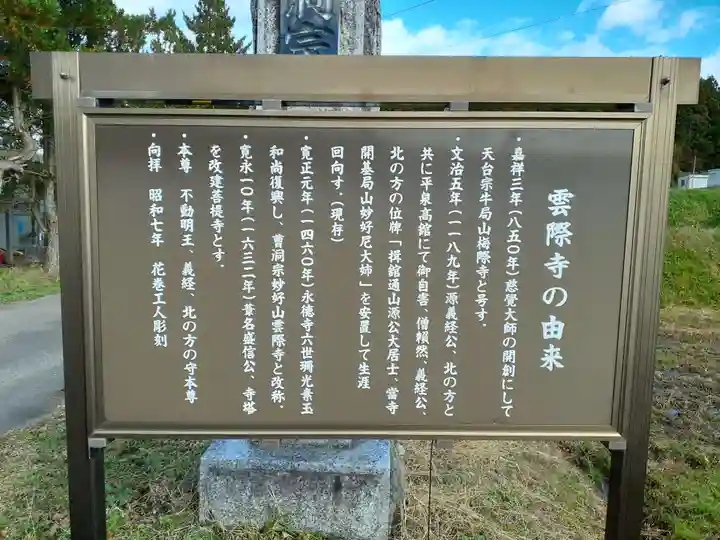 雲際寺の由来
・嘉祥三年(八五〇年)慈覺大師の開創にして
天台宗牛局山梅際寺と号す．
・文治五年(一一八九年)源義経公、北の方と
共に平泉高舘にて御自害、僧頼然、義経公、
北の方の位牌「捐舘通山源公大居士、當寺
開基局山妙好尼大姉」を安置して生涯
回向す．(現存)
・寛正元年(一四六〇年)永德寺六世㻏光素玉
和尚復興し、曹洞宗妙好山雲際寺と改称．
・寛永一〇年(一六三二年)葦名盛信公、寺塔
を改建菩提寺とす．
・本尊　不動明王、義経、北の方の守本尊
・向拝　昭和七年　花巻工人彫刻